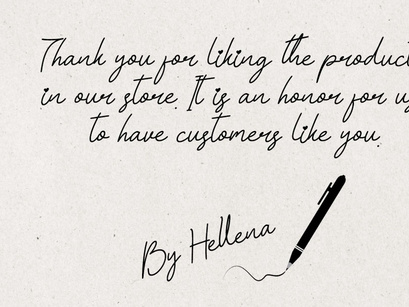 Thank you for liking the product
in our store. It is an honor for us
to have customers like you.
By Hellena